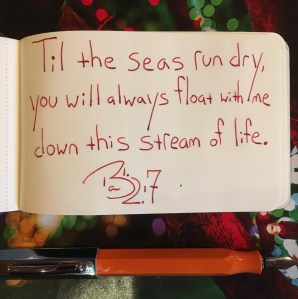 Til the seas run dry,
you will always float with me
down this stream of life.